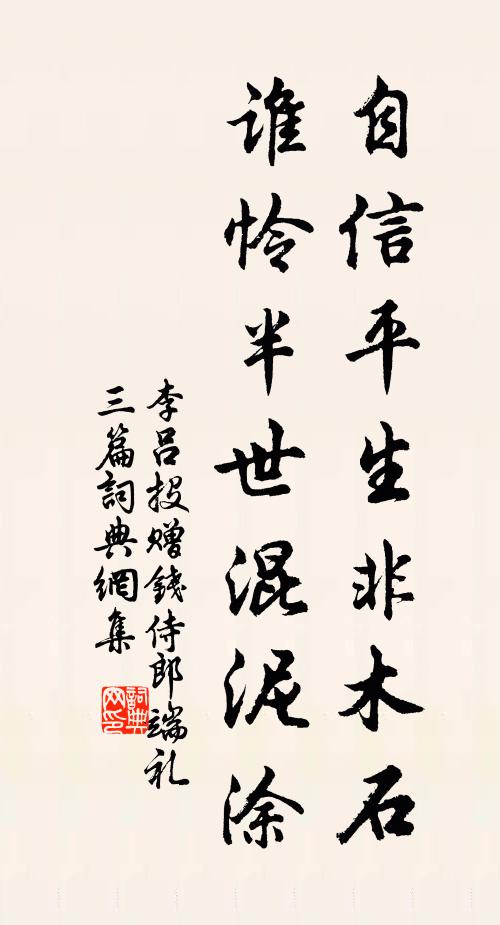 自信平生非木石
谁怜半世混泥涂
李吕投赠钱侍郎端礼
三篇词典網集
詞典网印